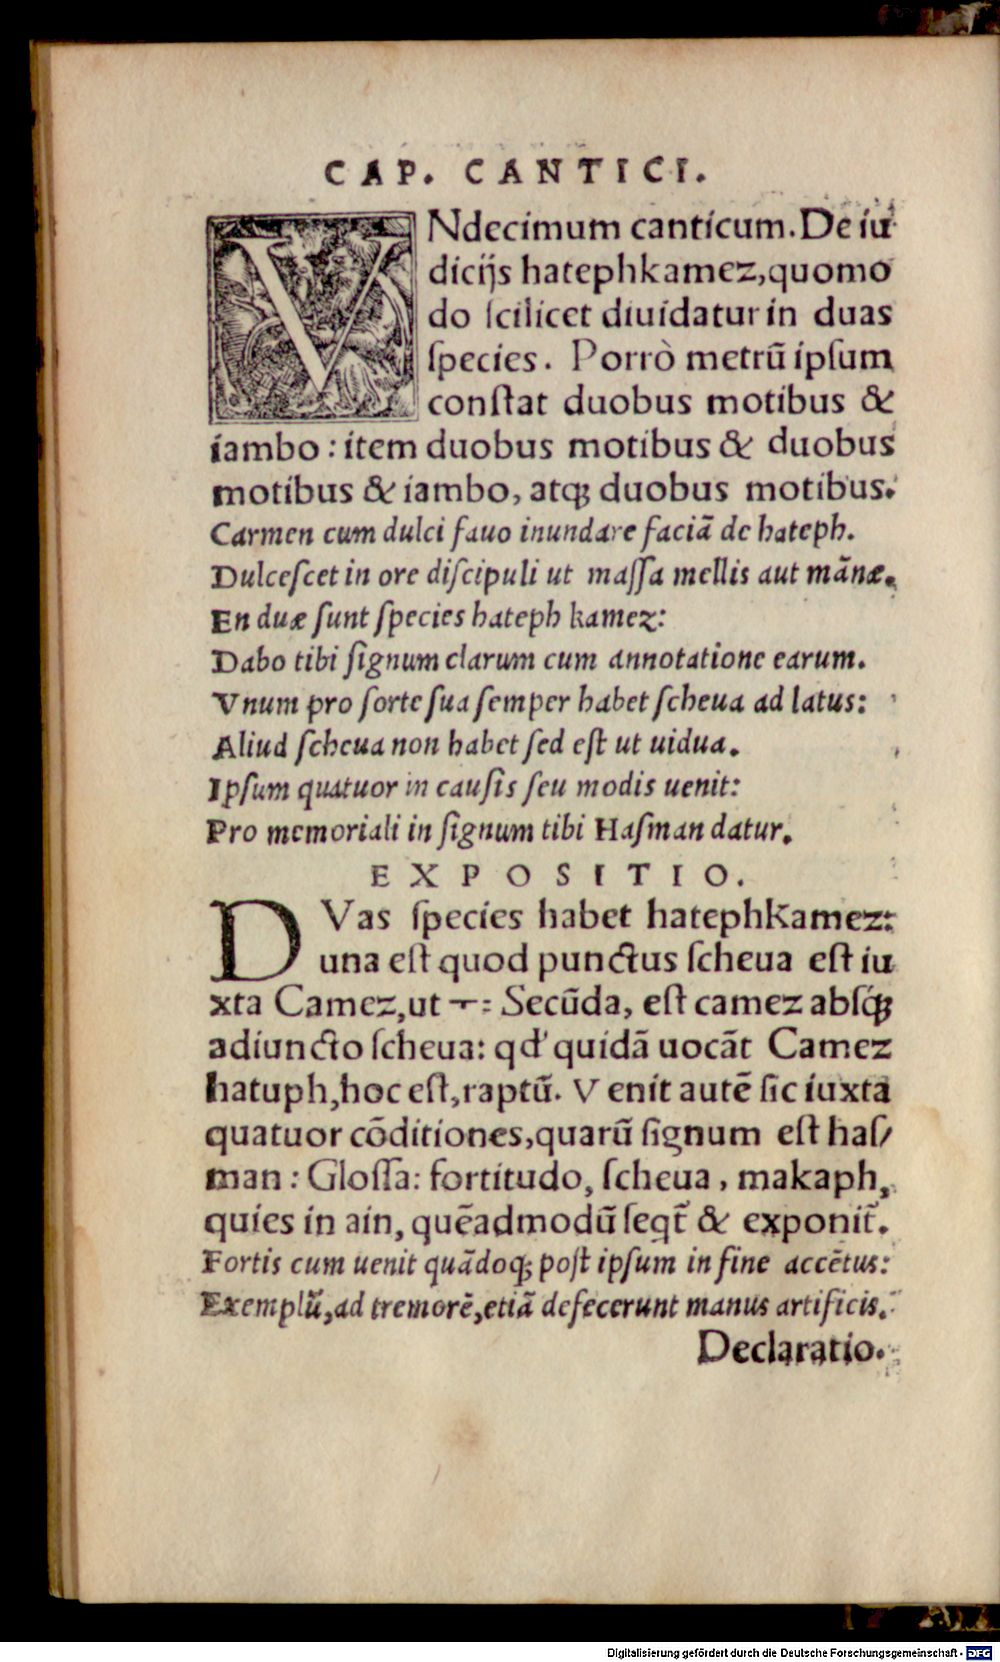 CAP. CANTICI.
VNdecimum canticum. De iu
dicijs hatephkamez, quomo
do ſcilicet diuidatur in duas
ſpecies. Porrò metrũ ipſum
conſtat duobus motibus &
iambo: item duobus motibus & duobus
motibus & iambo, atqꝫ duobus motibus.
Carmen cum dulci fauo inundare faciã de hateph.
Dulceſcet in ore diſcipuli ut maſſa mellis aut mãnæ.
En duæ ſunt ſpecies hateph kamez:
Dabo tibi ſignum clarum cum annotatione earum.
Vnum pro ſorte ſua ſemper habet ſcheua ad latus:
Aliud ſcheua non habet ſed eſt ut uidua.
Ipſum quatuor in cauſis ſeu modis uenit:
Pro memoriali in ſignum tibi Haſman datur.
EXPOSITIO.
DVas ſpecies habet hatephKamez:
una eſt quod punctus ſcheua eſt iu
xta Camez, ut Secũda, eſt camez abſqꝫ
adiuncto ſcheua: qd' quidã uocãt Camez
hatuph, hoc eſt, raptũ. Venit autẽ ſic iuxta
quatuor cõditiones, quarũ ſignum eſt haſ/
man: Gloſſa: fortitudo, ſcheua, makaph,
quies in ain, quẽadmodũ ſeqt̃ & exponit̃.
Fortis cum uenit quãdoqꝫ poſt ipſum in fine accẽtus:
Exemplũ, ad tremorẽ, etiã defecerunt manus artificis.
Declaratio.
Digitalisierung gefördert durch die Deutsche Forschungsgemeinschaft - DFG